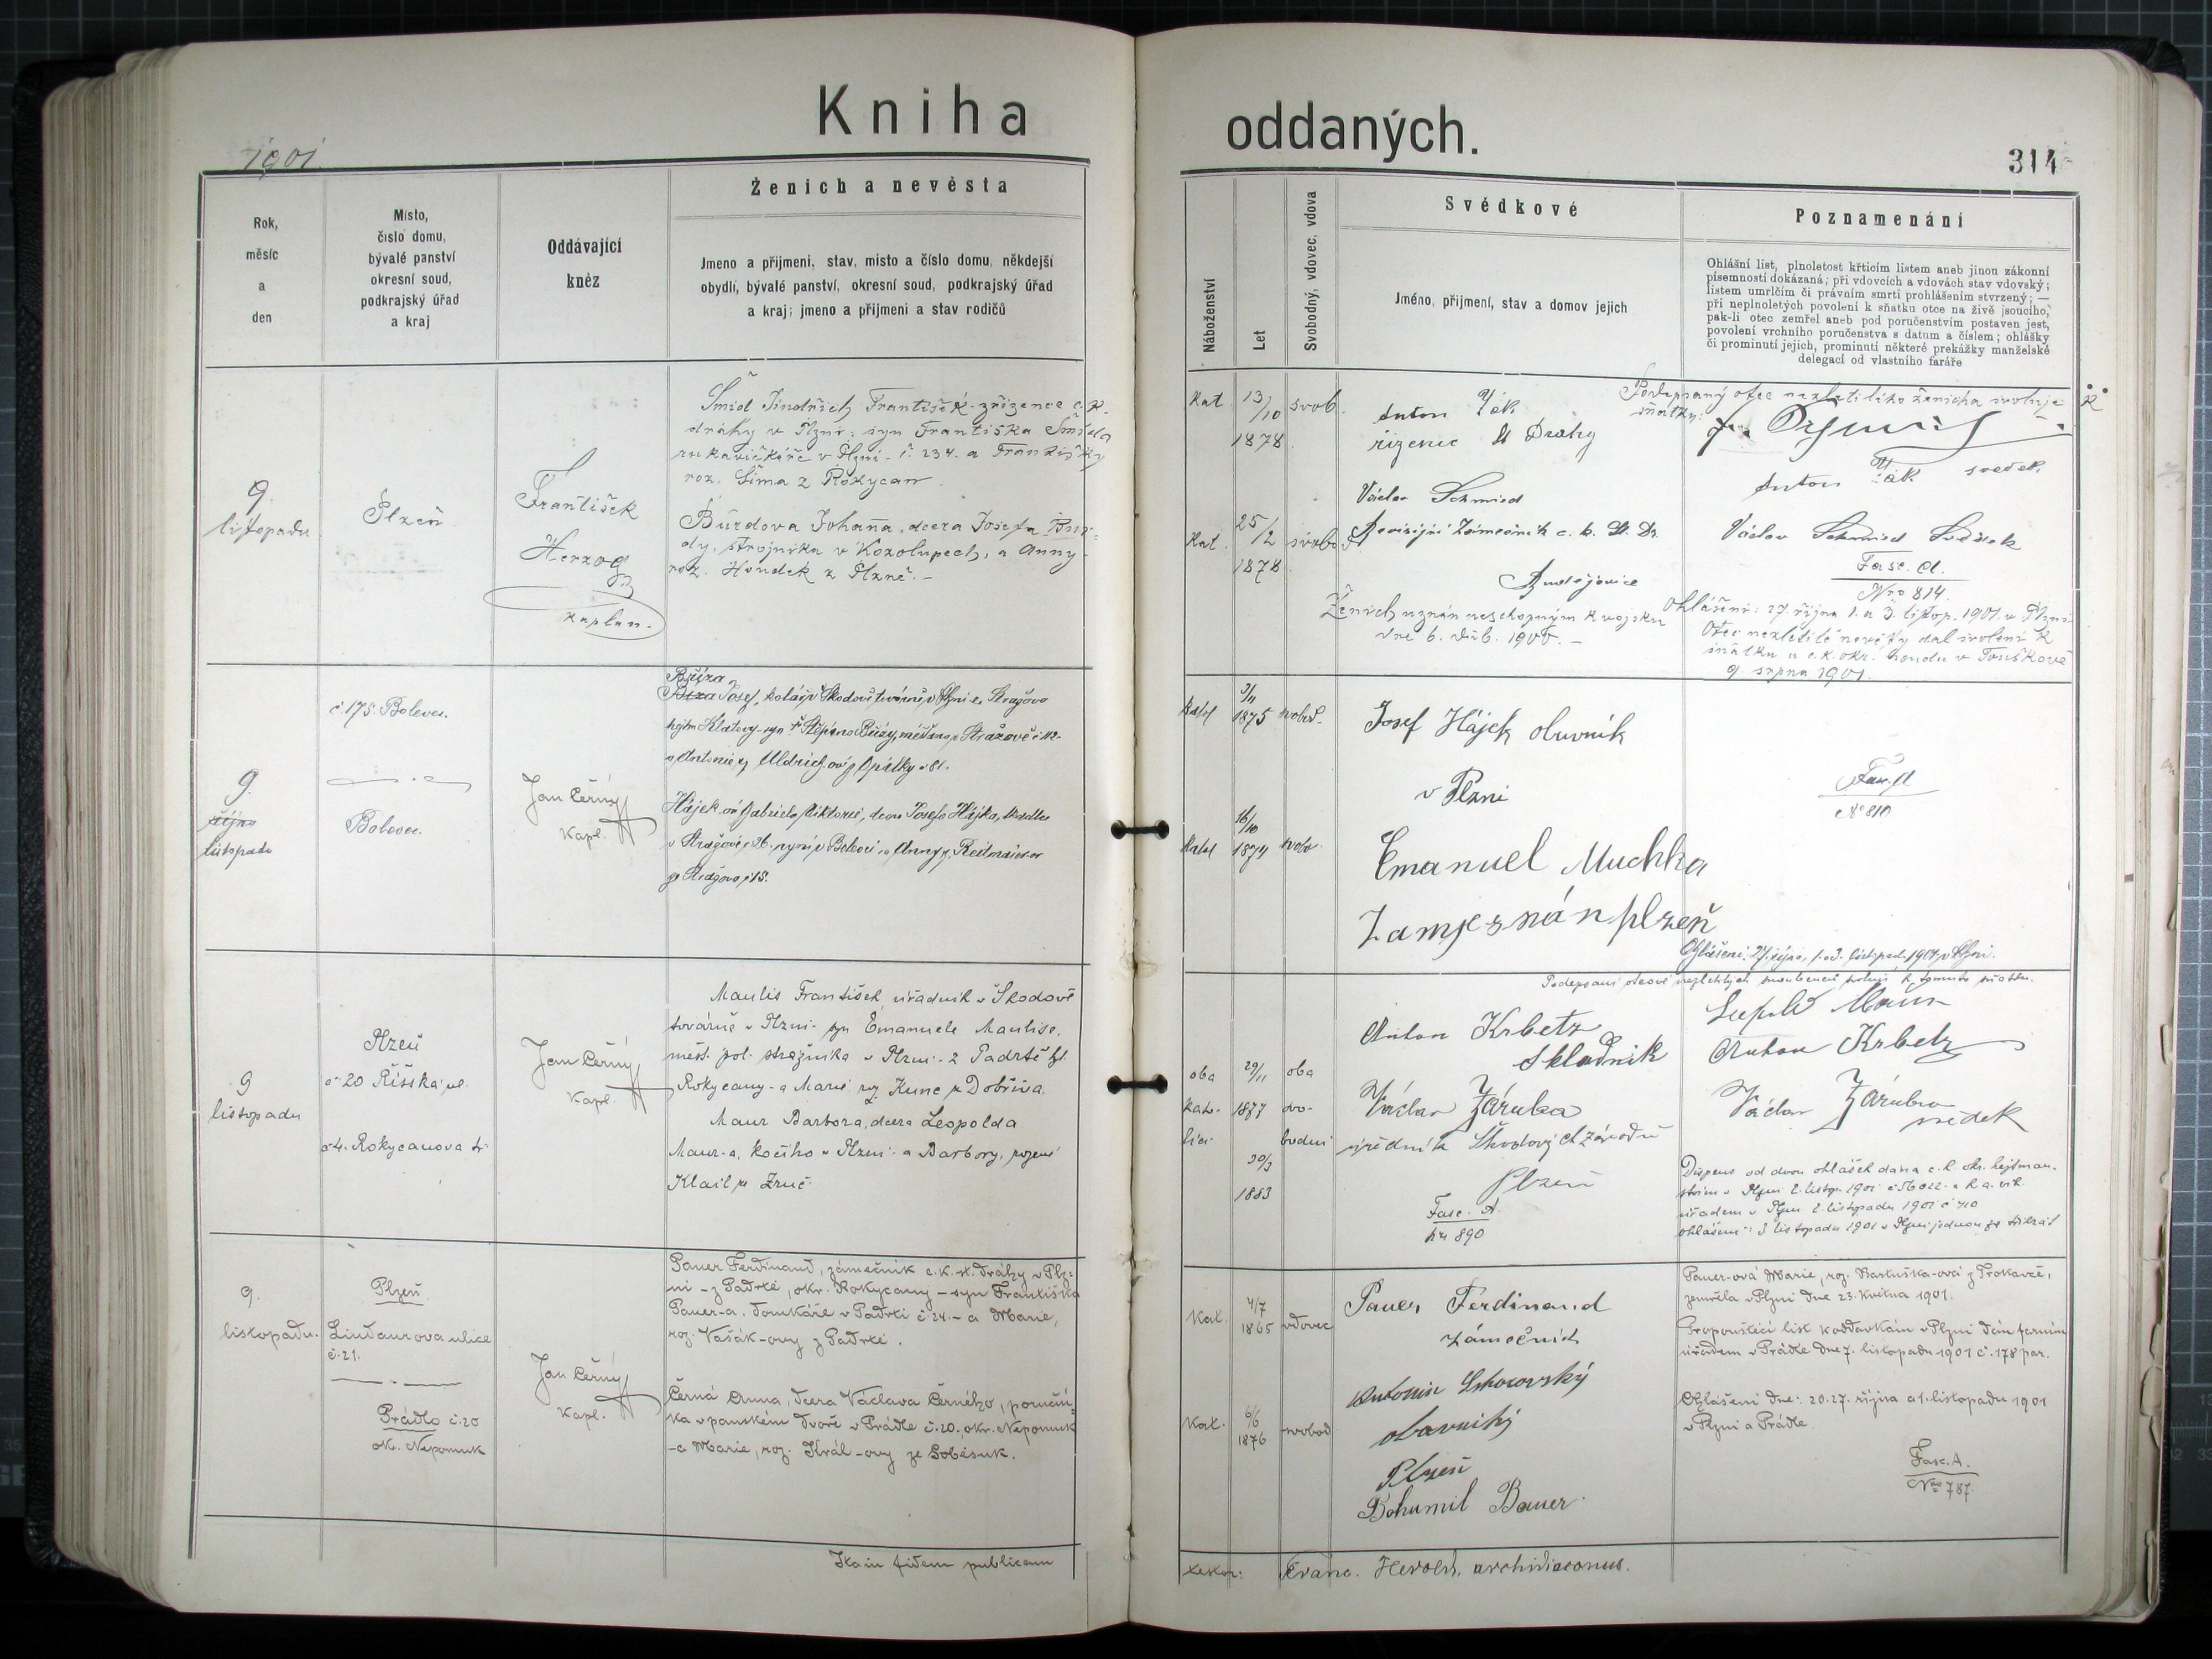 Kniha oddaných.
1901
314
Rok,
měsíc
a
den
Místo,
číslo domu,
bývalé panství
okresní soud,
podkrajský úřad
a kraj
Oddávající
kněz
Ženich a nevěsta
Jmeno a přijmeni, stav, misto a číslo domu, někdejší
obydlí, bývalé panství, okresní soud, podkrajský úřad
a kraj; jmeno a přijmeni a stav rodičů
Náboženství
Let
Svobodný, vdovec, vdova
Svědkové
Jméno, přijmení, stav a domov jejich
Poznamenání
Ohlášní list, plnoletost křticím listem aneb jinou zákonní
písemností dokázaná; při vdovcích a vdovách stav vdovský;
listem umrlčím či právním smrti prohlášením stvrzený; —
při neplnoletých povolení k sňatku otce na živě jsoucího,
pak-li otec zemřel aneb pod poručenstvím postaven jest,
povolení vrchního poručenstva s datum a číslem; ohlášky
či prominutí jejich, prominutí některé prekážky manželské
delegací od vlastního faráře
9.
listopadu
Plzeň
František
Herzog
kaplan.
Šmid Jindřich František zřízenec c. k.
dráhy v Plzni, syn Františka Šmida
rukavičkáře v Plzni č. 234. a Františky
roz. Šima z Rokycan.
Burdova Johana, dcera Josefa Bur-
dy, strojníka v Kozolupech, a Anny
roz. Houdek z Plzně. -
Kat
13/10
1878
svob.
Kat.
25/2
1878
svobo
Anton
řizenec St Dráhy
Václav Schmied
Revisijní Zámečník c. k. St. Dr.
Ženich uznán neschopným k vojsku
dne 6. dub. 1900. -
Podepsaný otec nezletilého ženicha svoluje k
sňatku:
Anton svědek.
Václav Schmied Svědek
Fasc. A.
Nro 814.
Ohlášení: 27. října 1. a 3. listop. 1901. v Plzni
Otec nezletilé nevěsty dal svolení k
sňatku u c. k. okr. soudu v Touškově
9. srpna 1901.
9.
října
listopadu
č 175. Bolevec.
Bolevec.
Jan Černý
Kapl.
Josef, kolář v Škodově továrně v Plzni ze Strážova
hejtm Klatovy - syn Štěpána měšťana v Strážově č 112 -
a Antonie z Uldrich-ový z Opálky č 81.
Hájek-ová Gabriela Viktorie, dcera Josefa Hájka,
v Strážově č 26. nyní v Bolevci a Anny
ze Strážova č 15.
Kathol
3/11
1875
svobod.
Kathol
16/10
1874
svob.
Josef Hájek obuvník
v Plzni
Emanuel Muchka
Fasc. A
No 810
Ohlášeni: 27. října, 1. a 3. listopadu 1901 v Plzni.
9
listopadu
Plzeň
č 20 Říšská ul.
č 4. Rokycanova tř
Jan Černý
Kapl.
Maulis František úřadník v Škodově
továrně v Plzni - syn Emanuele Maulise,
měst. pol. strážníka v Plzni - z Padrtě hejt
Rokycany - a Marie roz. Kunc z Dobříva.
Maur Barbora, dcera Leopolda
Maur-a, kočího v Plzni - a Barbory, rozené
Klail ze Zruč.
oba
kato-
lici
29/11
1877
30/3
1883
oba
svo-
bodni
Anton Krbetz
Skladnik
Václav Záruba
úředník Škodových závodů
Plzeň
Fasc. A.
No 890
Podepsaní otcové nezletilých snoubenců svolují k tomuto sňatku.
Leopold Maur
Anton Krbetz
Václav Záruba
svědek
Dispens od dvou ohlášek dána c. k. okr. hejtman-
stvím v Plzni 2. listop. 1901 č 56022. a k. a. vik.
úřadem v Plzni 2. listopadu 1901 č 710
ohlášení: 3 listopadu 1901 v Plzni jednou za třikrát
9.
listopadu.
Plzeň.
Lindaurova ulice
č. 21.
Prádlo č. 20
ok. Nepomuk
Jan Černý
Kapl.
Pauer Ferdinand, zámečník c. k. st. dráhy v Plz-
ni - z Padrtě, okr. Rokycany - syn Františka
Pauer-a, domkáře v Padrti č. 24. - a Marie,
roz. Vašák-ovy z Padrtě.
Černá Anna, dcera Václava Černého,
v panském dvoře v Prádle č. 20., okr. Nepomuk
- a Marie, roz. Král-ovy ze Soběsuk.
Kat.
4/7
1865
vdovec
Kat.
6/6
1876
svobod
Pauer Ferdinand
zámečník
Antonin
obuvnický
Plzeň
Bohumil Bauer
Pauer-ová Marie, roz. Bartuška-ová z Trokavce,
zemřela v Plzni dne 23. května 1901.
Propouštěcí list k oddavkám v Plzni dán farním
úřadem v Prádle dne 7. listopadu 1901 č. 178 par.
Ohlášeni dne: 20. 27. října a 1. listopadu 1901
v Plzni a Prádle.
Fasc. A.
Nro 787.
Ita in fidem publicam
Franc. Herold, archidiaconus.